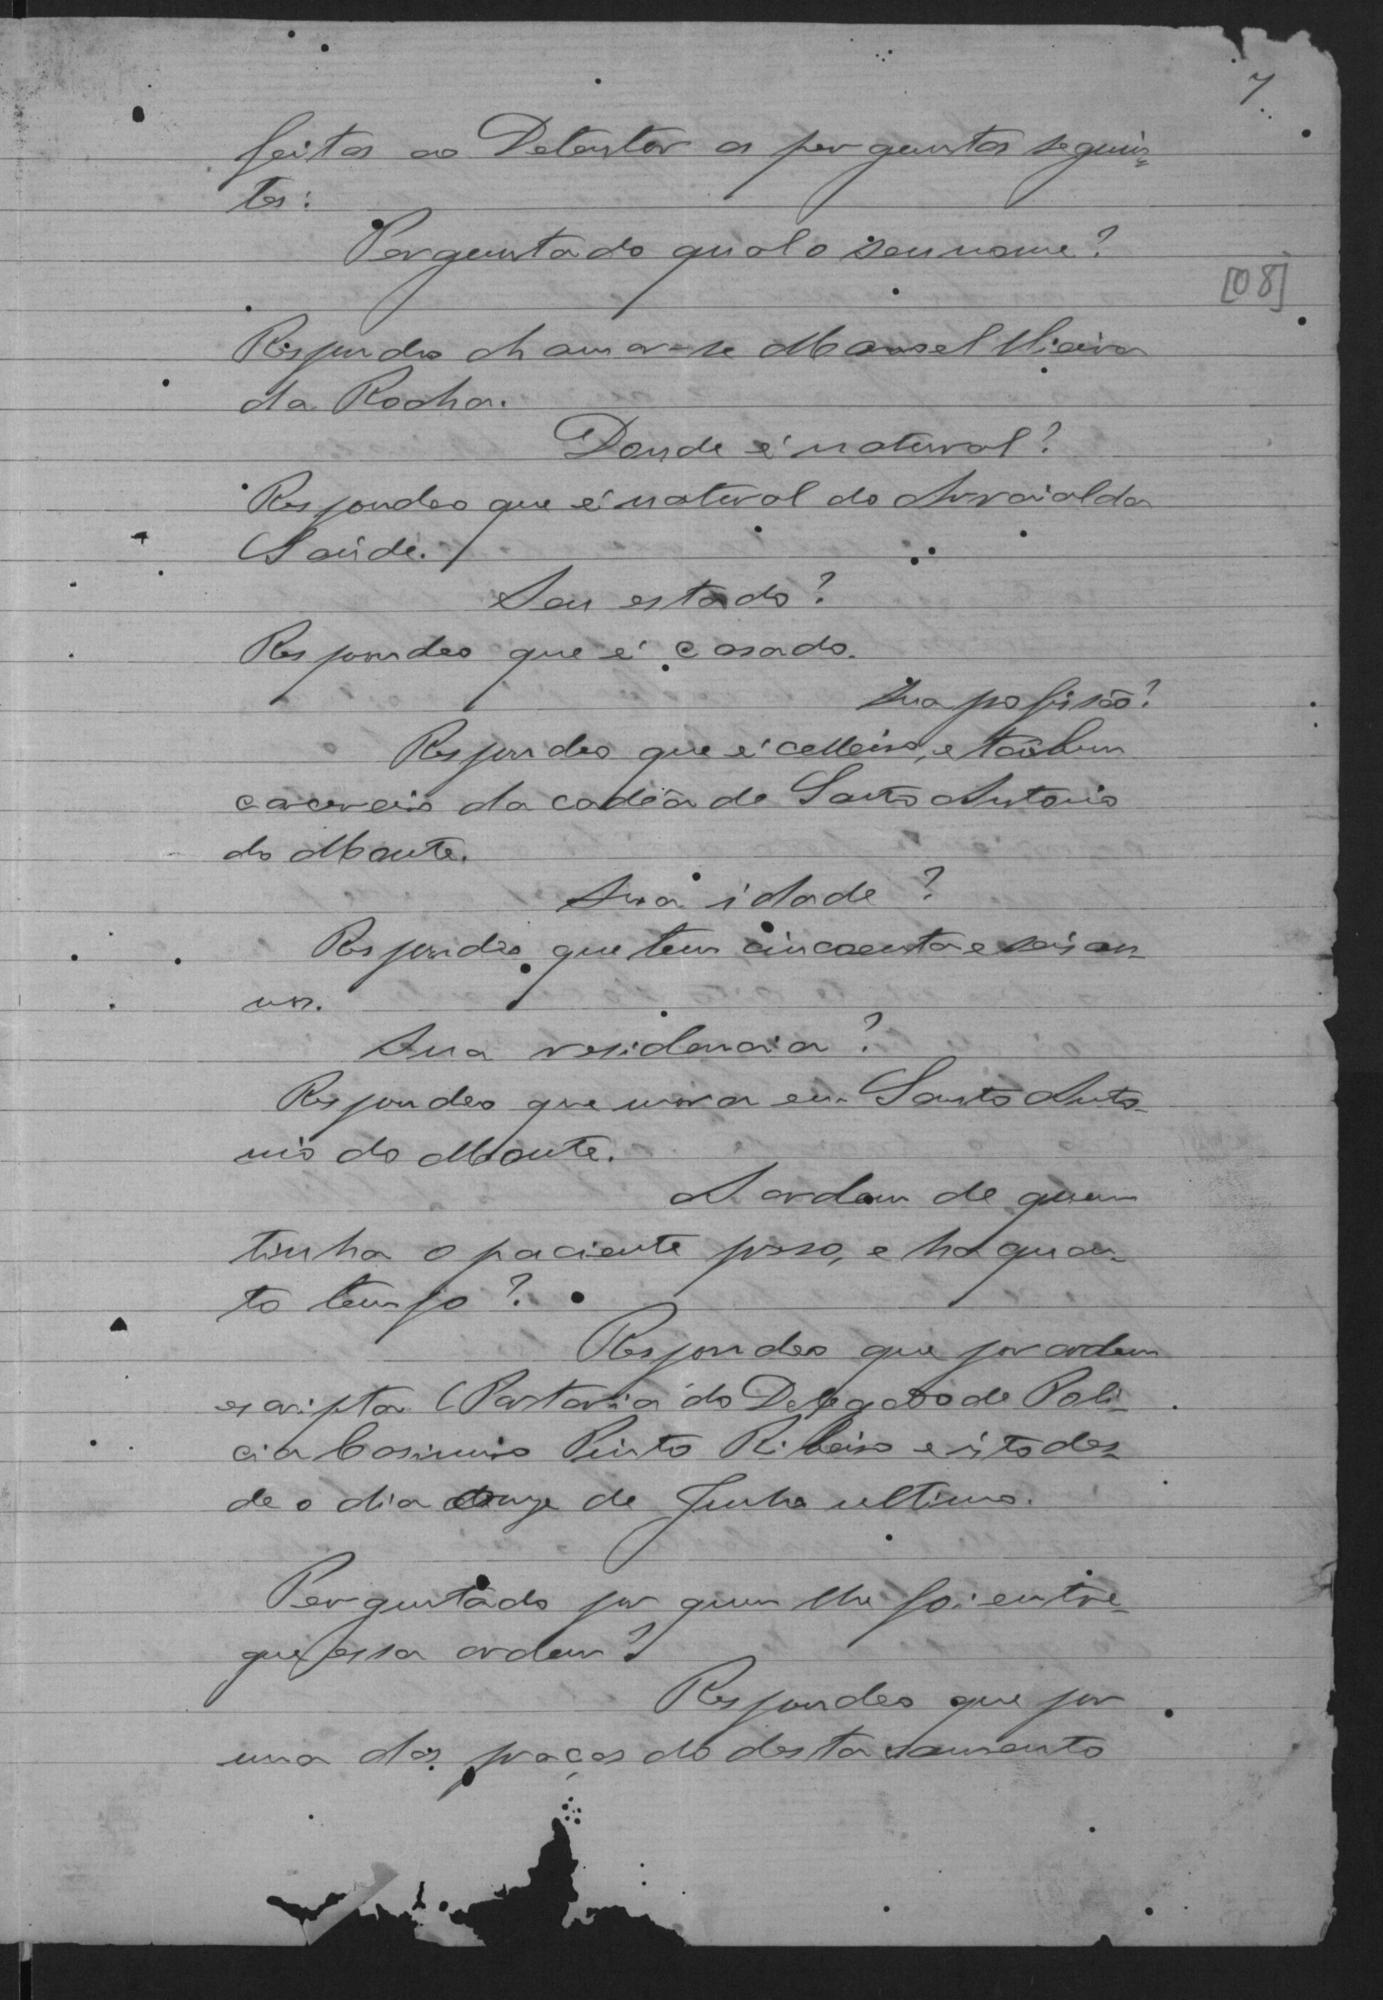 7
feitas ao Detentor as perguntas seguin-
tes:
Perguntado qual o seu nome?
[08]
Respondeo chamar-se Manoel Vieira
da Rocha.
Donde é natural?
Respondeo que é natural do Arraial da
Saúde.
Seu estado?
Respondeo que é casado.
Sua pofissão?
Respondeo que é celleiro, e também
carcereiro da cadêa de Santo Antonio
do Monte.
Sua idade?
Respondeo que tem cincoenta e seis an-
nos.
Sua residencia?
Respondeo que mora em Santo Anto-
nio do Monte.
A ordem de quem
tinha o paciente preso, e ha quan-
to tempo?
Respondeo que por ordem
escripta (Portaria do Delegado de Poli-
cia Casimiro Pinto Ribeiro e isto des-
de o dia de Junho ultimo.
Perguntado por quem lhe foi entre-
gue essa ordem?
Respondeo que por
uma das praças do destacamento